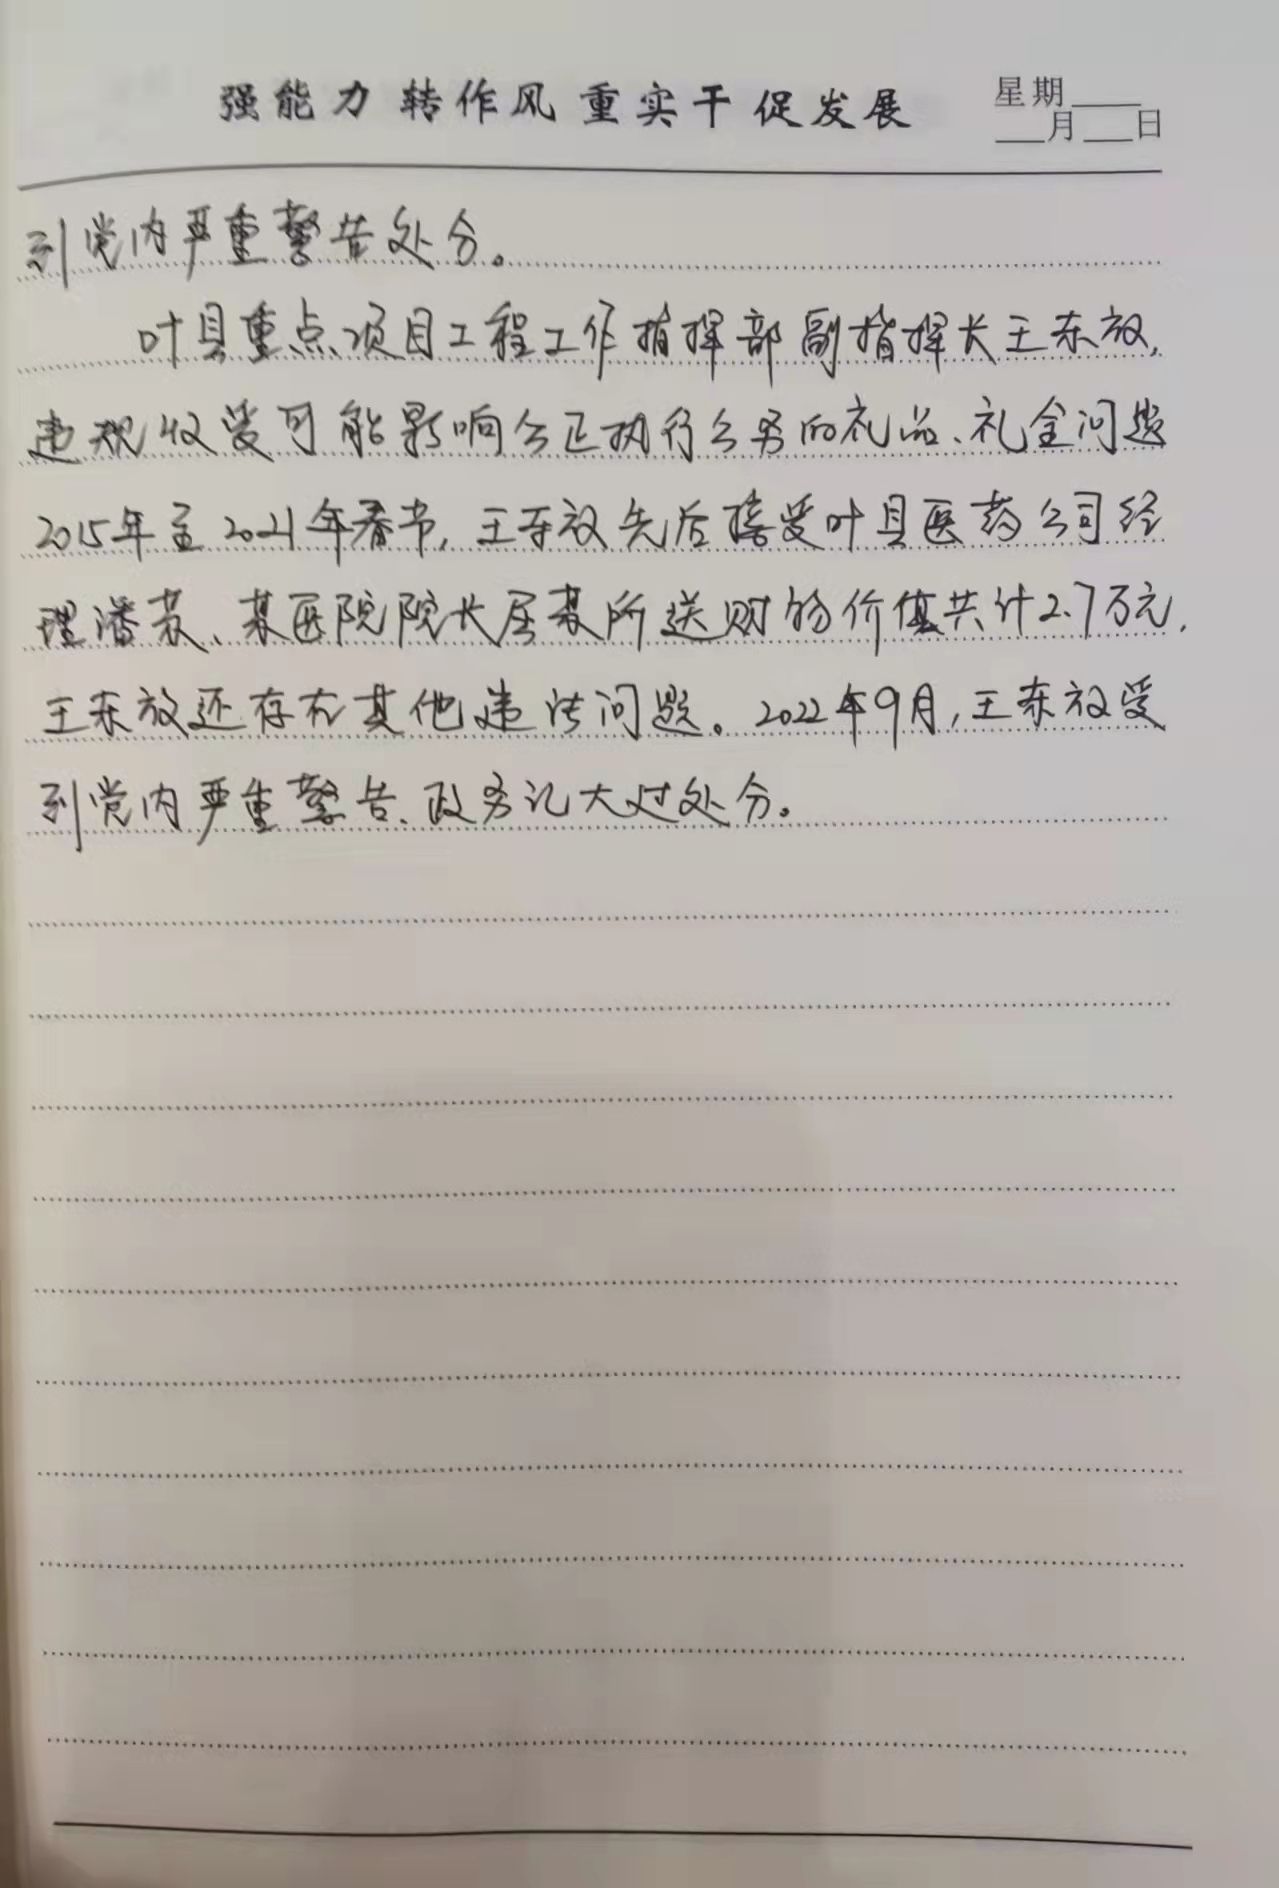 强能力 转作风 重实干 促发展
星期
月 日
到党内严重警告处分。
叶县重点项目工程工作指挥部副指挥长王东放,
违规收受可能影响公正执行公务的礼品、礼金问题
2015年至2021年春节,王东放先后接受叶县医药公司经
理潘某、某医院院长屈某所送财物价值共计2.7万元,
王东放还存在其他违法问题。2022年9月,王东放受
到党内严重警告、政务记大过处分。